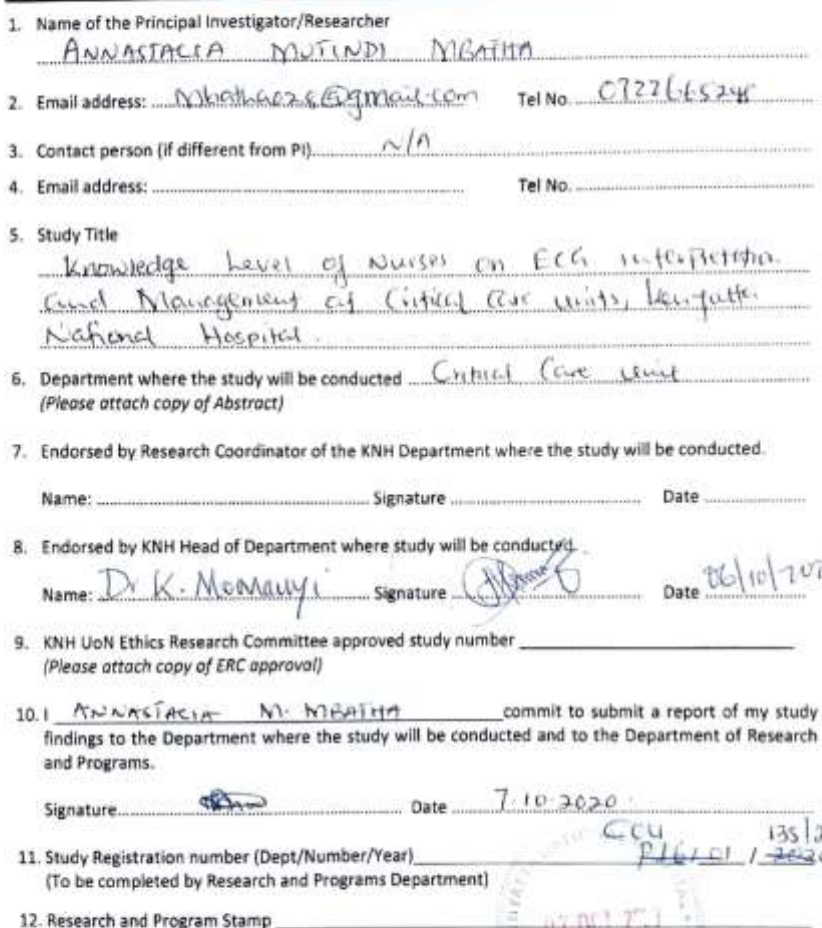 1. Name of the Principal Investigator/Researcher
ANNASTACIA MUTINDI MBATHA
2. Email address: Mbatha028@gmail.com Tel No.
3. Contact person (if different from PI) N/A
4. Email address: Tel No.
5. Study Title
Knowledge Level of Nurses on ECG
and Management at Critical Care units,
National Hospital.
6. Department where the study will be conducted Critical Care unit
(Please attach copy of Abstract)
7. Endorsed by Research Coordinator of the KNH Department where the study will be conducted.
Name: Signature Date
8. Endorsed by KNH Head of Department where study will be conducted
Name: Dr K. Momanyi Signature Date 06/10/202
9. KNH UoN Ethics Research Committee approved study number
(Please attach copy of ERC approval)
10. I ANNASTACIA M. MBATHA commit to submit a report of my study
findings to the Department where the study will be conducted and to the Department of Research
and Programs.
Signature Date 7.10.2020.
CCU 135/2
11. Study Registration number (Dept/Number/Year)
(To be completed by Research and Programs Department)
12. Research and Program Stamp